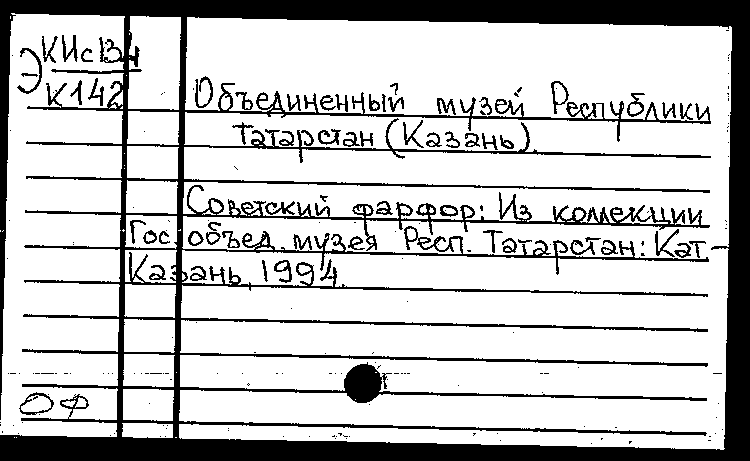 Э КИс13ч
К142
Объединенный музей Республики
Татарстан (Казань).
Советский фарфор: Из коллекции
Гос. объед. музея Респ. Татарстан: Кат -
Казань, 1994.
ОФ